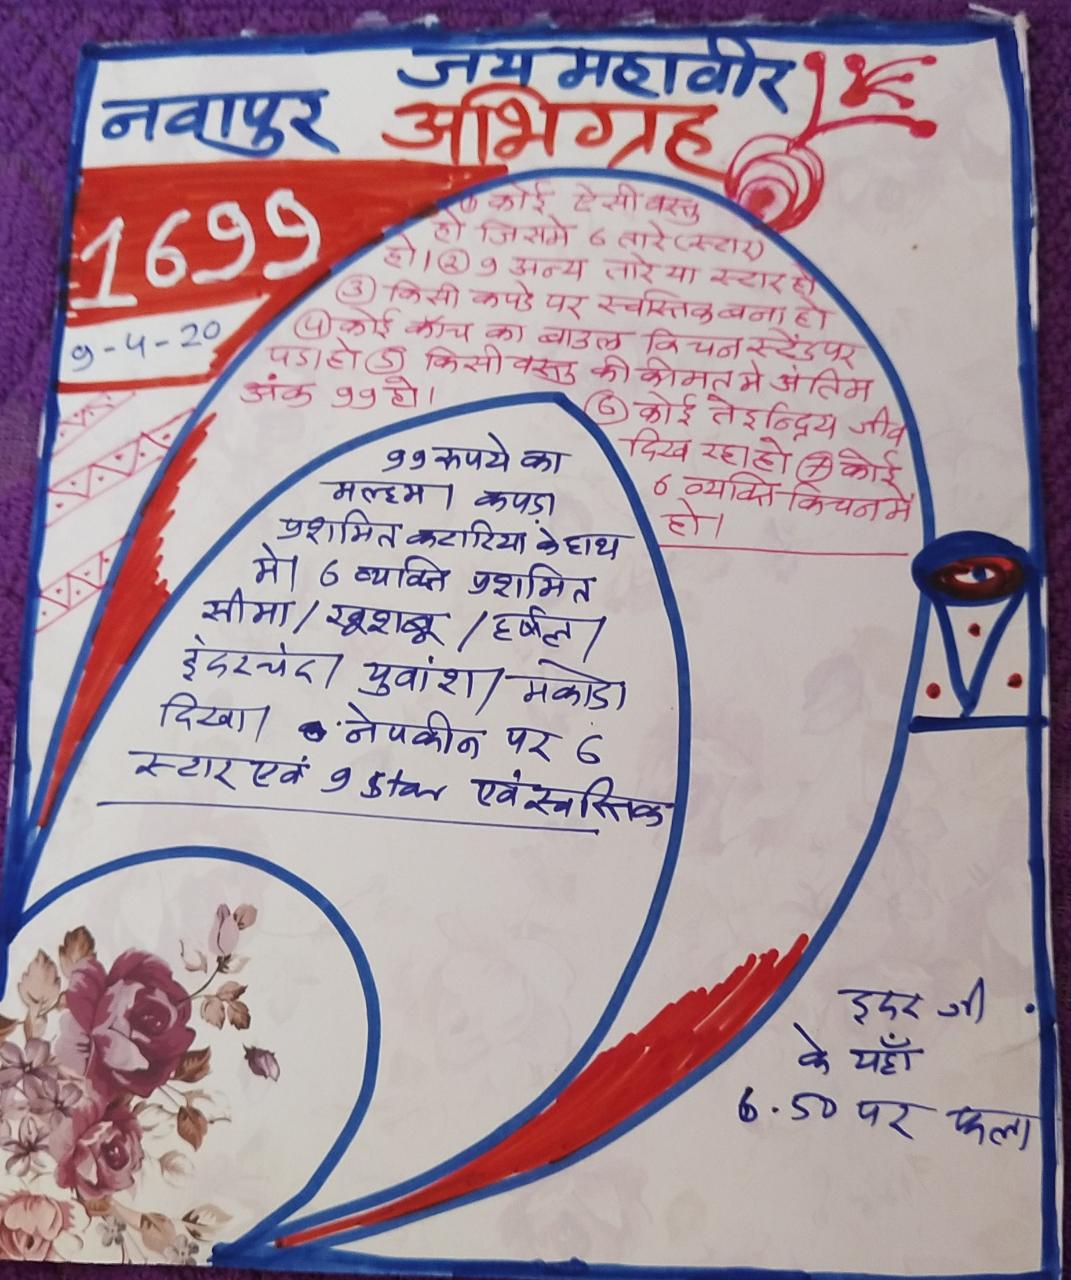 जय महावीर
नवापुर अभिग्रह
1699
9-4-20
① कोई ऐसी वस्तु
हो जिसमे 6 तारे (स्टार)
हो। ② 9 अन्य तारे या स्टार हो
③ किसी कपडे पर स्वस्तिक बना हो
④ कोई कॉच का बाउल किचन स्टेंड पर
पडा हो ⑤ किसी वस्तु की कीमत मे अंतिम
अंक 99 हो।
⑥ कोई तेइन्द्रिय जीव
दिख रहा हो ⑦ कोई
6 व्यक्ति किचन में
हो।
99 रुपये का
मल्हम। कपडा
प्रशमित कटारिया के हाथ
मे। 6 व्यक्ति प्रशमित
सीमा / खूशबू / हर्षल /
इंदरचंद / युवांश / मकोडा
दिखा। नेपकीन पर 6
स्टार एवं 9 Star एवं स्वस्तिक
इदर जी
के यहाँ
6.50 पर फला